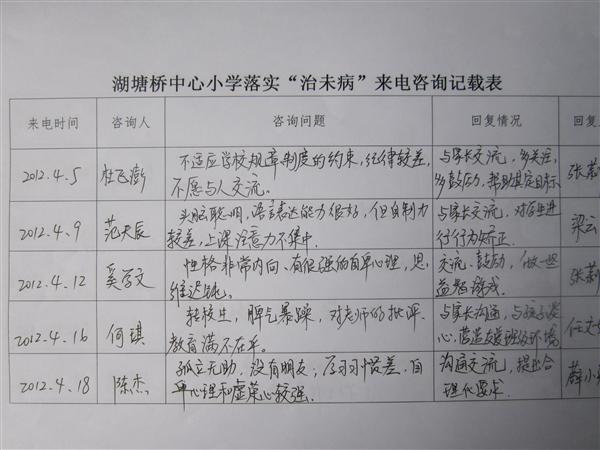 湖塘桥中心小学落实“治未病”来电咨询记载表
来电时间 咨询人 咨询问题 回复情况 回复
2012.4.5 杜飞澎 不适应学校规章制度的约束,纪律较差, 与家长交流,多关注,
不愿与人交流。 多鼓励,帮助其定目标
2012.4.9 范天辰 头脑聪明,语言表达能力很好,但自制力 与家长交流,对学生进 梁云
较差,上课注意力不集中. 行行为矫正.
2012.4.12 奚学文 性格非常内向、有很强的自卑心理,思 交流、鼓励,做一些
维迟钝。 益智游戏.
2012.4.16 何琪 转校生,脾气暴躁,对老师的批评、 与家长沟通,与孩子谈 任文
教育满不在乎。 心,营造友爱班级环境
2012.4.18 陈杰 孤立无助,没有朋友;学习习惯差,自 沟通交流,提出合 薛小
卑心理和虚荣心较强. 理化要求.